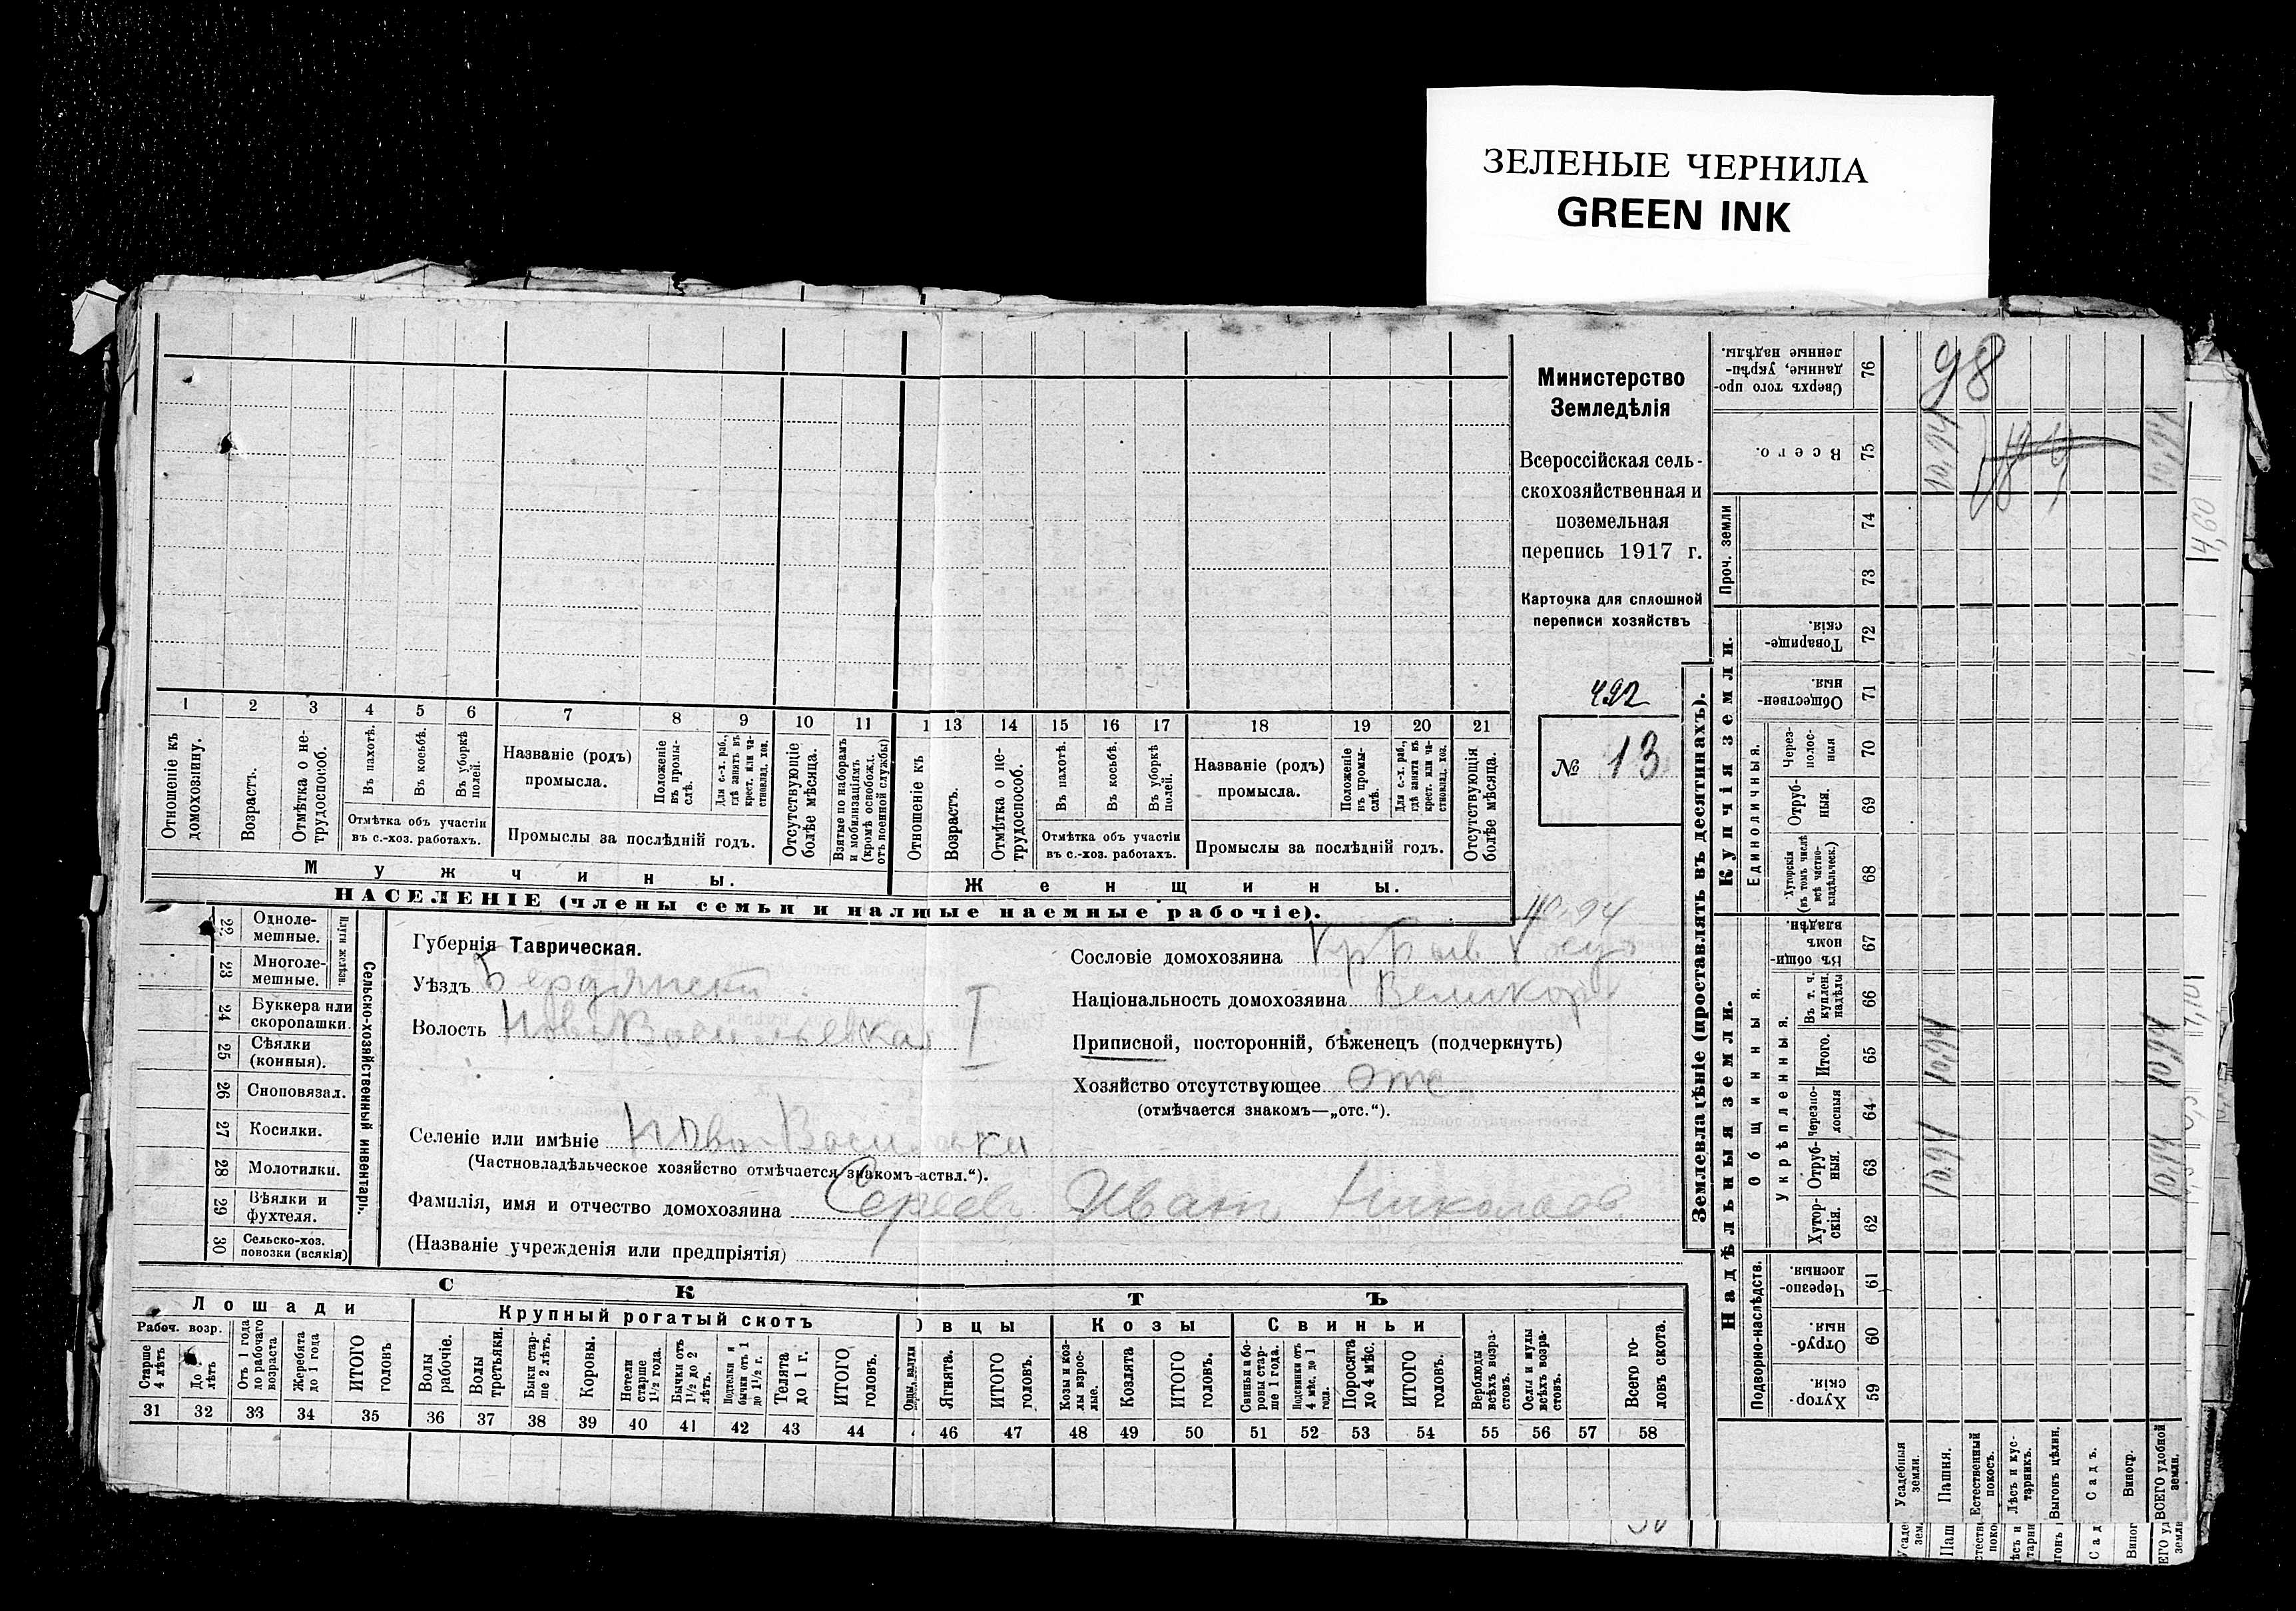 ЗЕЛЕНЫЕ ЧЕРНИЛА
GREEN INK
Министерство
Земледѣлія
Всероссійская сель-
скохозяйственная и
поземельная
перепись 1917 г.
Карточка для сплошной
переписи хозяйствъ
492
№ 13
1 2 3 4 5 6 7 8 9 10 11
Отношеніе къ домохозяину.
Возрастъ.
Отмѣтка о не-
трудоспособ.
Въ пахотѣ.
Въ косьбѣ.
Въ уборкѣ
полей.
Отмѣтка объ участіи
въ с.-хоз. работахъ.
Названіе (родъ)
промысла.
Положеніе
въ промы-
слѣ.
Для с.-х. раб.,
гдѣ занятъ въ
крест. или ча-
стновлад. хоз.
Промыслы за послѣдній годъ.
Отсутствующіе
болѣе мѣсяца.
Взятые по наборамъ
и мобилизаціямъ
(кромѣ освобожд.
отъ военной службы)
Мужчины.
1 13 14 15 16 17 18 19 20 21
Отношеніе къ
Возрастъ.
Отмѣтка о не-
трудоспособ.
Въ пахотѣ.
Въ косьбѣ.
Въ уборкѣ
полей.
Отмѣтка объ участіи
въ с.-хоз. работахъ.
Названіе (родъ)
промысла.
Положеніе
въ промы-
слѣ.
Для с.-х. раб.,
гдѣ занята въ
крест. или ча-
стновлад. хоз.
Промыслы за послѣдній годъ.
Отсутствующія
болѣе мѣсяца.
Женщины.
НАСЕЛЕНІЕ (члены семьи и налицные наемные рабочіе).
22 Одноле-
мешные.
23 Многоле-
мешные.
Плуги желѣзн.
24 Буккера или
скоропашки.
25 Сѣялки
(конныя).
26 Сноповязал.
27 Косилки.
28 Молотилки.
29 Вѣялки и
фухтеля.
30 Сельско-хоз.
повозки (всякія)
Сельско-хозяйственный инвентарь.
Губернія Таврическая.
Уѣздъ Бердянскій
Волость Ново Васильевская I
Селеніе или имѣніе Ново-Васильевка
(Частновладѣльческое хозяйство отмѣчается знакомъ-аствл.“).
Фамилія, имя и отчество домохозяина Сергеев Иван Николаев
(Названіе учрежденія или предпріятія)
Сословіе домохозяина
Національность домохозяина Великор
Приписной, посторонній, бѣженецъ (подчеркнуть)
Хозяйство отсутствующее отс
(отмѣчается знакомъ—„отс.“).
СКТЪ
Лошади
Рабоч. возр.
Старше
4 лѣтъ
До
лѣтъ
Отъ 1 года
до рабочаго
возраста
Жеребята
до 1 года
ИТОГО
головъ
Крупный рогатый скотъ
Волы
рабочіе.
Волы
третьяки.
Быки стар-
ше 2 лѣтъ.
Коровы.
Нетели
старше
1½ года.
Бычки отъ
1½ до 2
лѣтъ.
Подтелки и
бычки отъ 1
до 1½ г.
Телята
до 1 г.
ИТОГО
головъ.
Овцы
Ягнята.
ИТОГО
головъ.
Козы
Козы и коз-
лы взрос-
лые.
Козлята
ИТОГО
головъ.
Свиньи
Свиньи и бо-
ровы стар-
ше 1 года.
Подсвинки отъ
4 мѣс. до 1
года.
Поросята
до 4 мѣс.
ИТОГО
головъ.
Верблюды
всѣхъ возра-
стовъ.
Ослы и мулы
всѣхъ возра-
стовъ.
Всего го-
ловъ скота.
31 32 33 34 35 36 37 38 39 40 41 42 43 44 46 47 48 49 50 51 52 53 54 55 56 57 58
Землевладѣніе (проставлять въ десятинахъ).
Сверхъ того про-
данные, укрѣп-
ленные надѣлы.
76
98
Всего.
75
10,94
10,94
Проч. земли
74
73
Купчія земли.
Товарище-
скія.
72
Обществен-
ныя
71
Единоличныя.
Через-
полос-
ныя
70
Отруб-
ныя.
69
Хуторскія
(въ томъ числѣ
всѣ частно-
владѣльческ.)
68
Надѣльныя земли.
Общинныя.
Въ общи-
номъ
владѣн.
67
Укрѣпленныя.
Въ т. ч.
куплен.
надѣлы
66
Итого.
65
10,94
10,94
Черезпо-
лосныя
64
Отруб-
ныя.
63
10,94
10,94
Хутор-
скія.
62
Подворно-наслѣдств.
Черезпо-
лосныя
61
Отруб-
ныя.
60
Хутор-
скія
59
Усадебныя
земли.
Пашня.
Естественный
покосъ.
Лѣсъ и кус-
тарникъ.
Выгонъ цѣлин.
Садъ.
Виногр.
ВСЕГО удобной
земли.
4,60